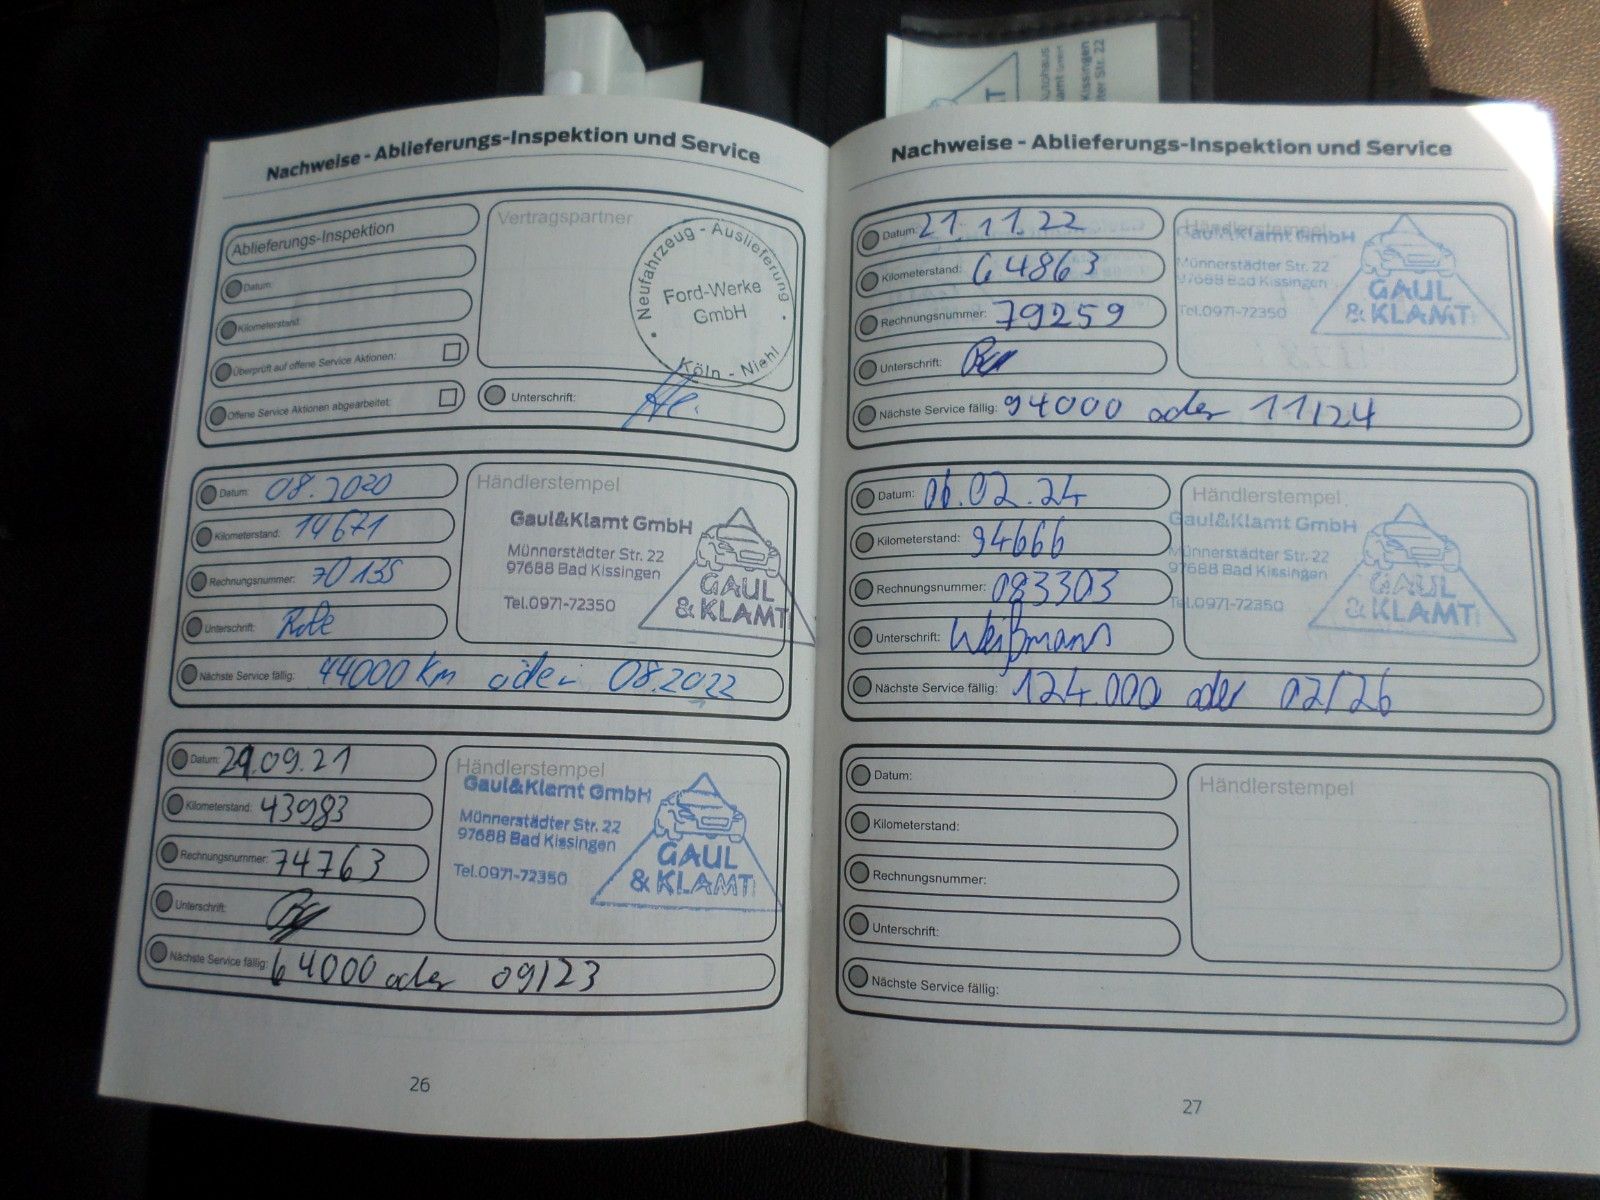 Nachweise - Ablieferungs-Inspektion und Service
Ablieferungs-Inspektion
Datum:
Kilometerstand:
Überprüft auf offene Service Aktionen:
Offene Service Aktionen abgearbeitet:
Vertragspartner
Neufahrzeug - Auslieferung
Ford-Werke
GmbH
Köln - Niehl
Unterschrift:
Datum: 08.2020
Kilometerstand: 14671
Rechnungsnummer: 70135
Unterschrift:
Händlerstempel
Gaul&Klamt GmbH
Münnerstädter Str. 22
97688 Bad Kissingen
Tel.0971-72350
GAUL
& KLAMT
Nächste Service fällig: 44000 km oder 08.2022
Datum: 29.09.21
Kilometerstand: 43983
Rechnungsnummer: 74763
Unterschrift:
Händlerstempel
Gaul&Klamt GmbH
Münnerstädter Str. 22
97688 Bad Kissingen
Tel.0971-72350
GAUL
& KLAMT
Nächste Service fällig: 64000 oder 09/23
26
Kissingen
Str. 22
Nachweise - Ablieferungs-Inspektion und Service
Datum: 21.11.22
Kilometerstand: 64863
Rechnungsnummer: 79259
Unterschrift:
Händlerstempel
Gaul&Klamt GmbH
Münnerstädter Str. 22
97688 Bad Kissingen
Tel.0971-72350
GAUL
& KLAMT
Nächste Service fällig: 94000 oder 11/24
Datum: 06.02.24
Kilometerstand: 94666
Rechnungsnummer: 083303
Unterschrift: Weißmann
Händlerstempel
Gaul&Klamt GmbH
Münnerstädter Str. 22
97688 Bad Kissingen
Tel.0971-72350
GAUL
& KLAMT
Nächste Service fällig: 124.000 oder 02/26
Datum:
Kilometerstand:
Rechnungsnummer:
Unterschrift:
Händlerstempel
Nächste Service fällig:
27